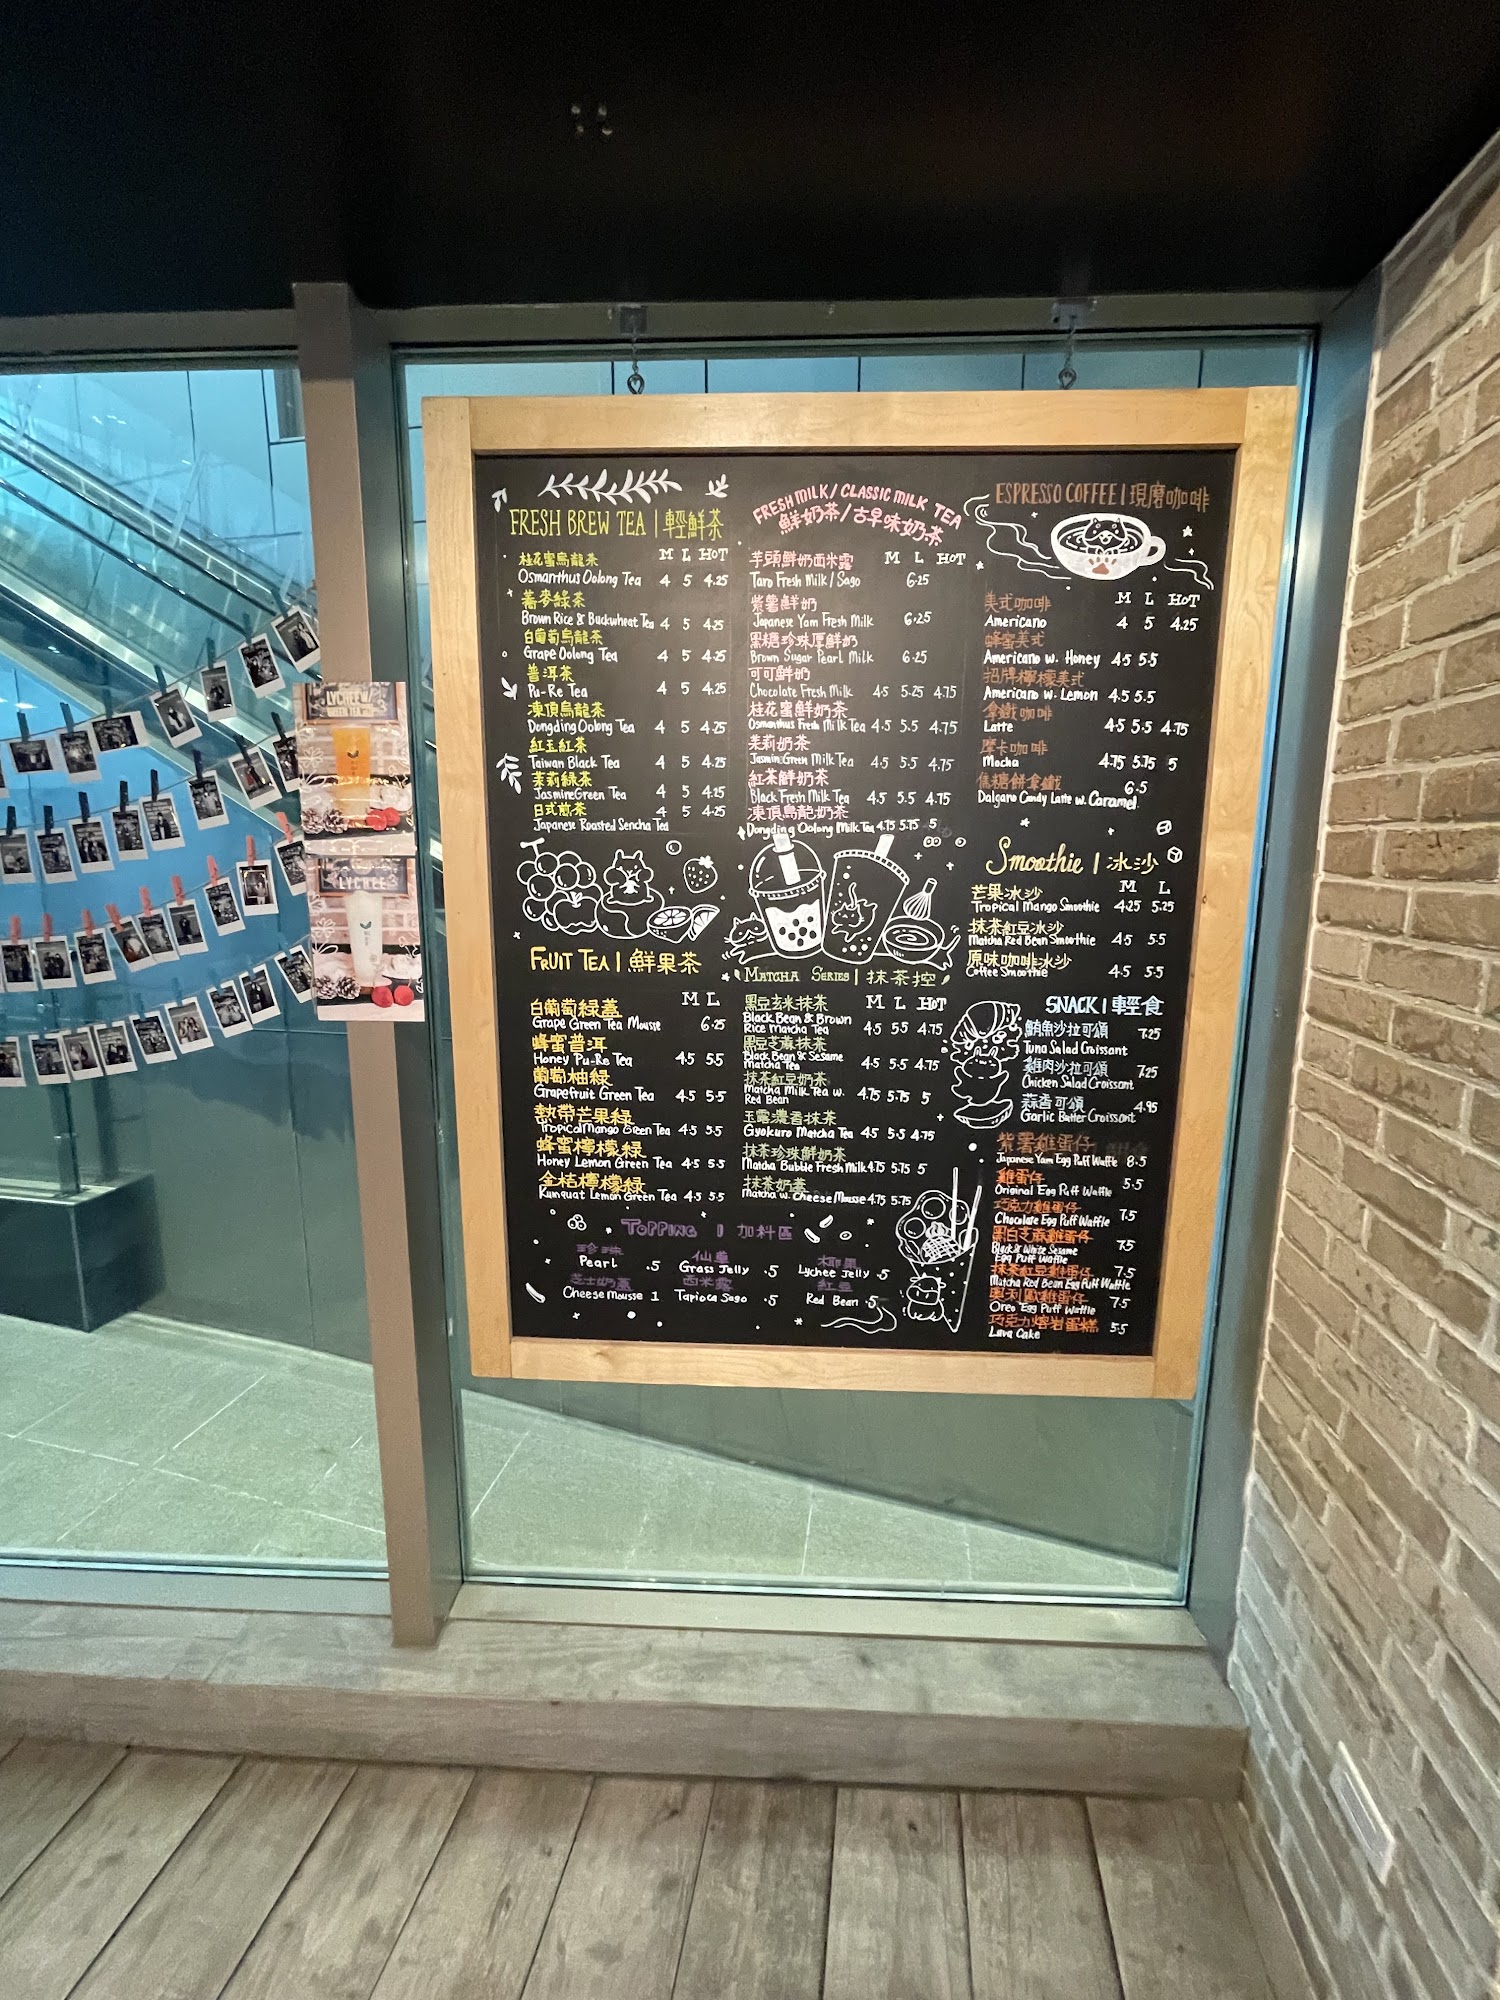 FRESH BREW TEA | 輕鮮茶
M L HOT
桂花蜜烏龍茶
Osmanthus Oolong Tea 4 5 4.25
蕎麥綠茶
Brown Rice & Buckwheat Tea 4 5 4.25
白葡萄烏龍茶
Grape Oolong Tea 4 5 4.25
普洱茶
Pu-Re Tea 4 5 4.25
凍頂烏龍茶
Dongding Oolong Tea 4 5 4.25
紅玉紅茶
Taiwan Black Tea 4 5 4.25
茉莉綠茶
Jasmine Green Tea 4 5 4.25
日式煎茶 4 5 4.25
Japanese Roasted Sencha Tea
FRUIT TEA | 鮮果茶
M L
白葡萄綠蓋
Grape Green Tea Mousse 6.25
蜂蜜普洱
Honey Pu-Re Tea 4.5 5.5
葡萄柚綠
Grapefruit Green Tea 4.5 5.5
熱帶芒果綠
Tropical Mango Green Tea 4.5 5.5
蜂蜜檸檬綠
Honey Lemon Green Tea 4.5 5.5
金桔檸檬綠
Kumquat Lemon Green Tea 4.5 5.5
FRESH MILK / CLASSIC MILK TEA
鮮奶茶/古早味奶茶
芋頭鮮奶西米露 M L HOT
Taro Fresh Milk / Sago 6.25
紫薯鮮奶
Japanese Yam Fresh Milk 6.25
黑糖珍珠厚鮮奶
Brown Sugar Pearl Milk 6.25
可可鮮奶
Chocolate Fresh Milk 4.5 5.25 4.75
桂花蜜鮮奶茶
Osmanthus Fresh Milk Tea 4.5 5.5 4.75
茉莉奶茶
Jasmine Green Milk Tea 4.5 5.5 4.75
紅茶鮮奶茶
Black Fresh Milk Tea 4.5 5.5 4.75
凍頂烏龍奶茶
Dongding Oolong Milk Tea 4.75 5.75 5
MATCHA SERIES | 抹茶控
黑豆玄米抹茶 M L HOT
Black Bean & Brown
Rice Matcha Tea 4.5 5.5 4.75
黑豆芝麻抹茶
Black Bean & Sesame
Matcha Tea 4.5 5.5 4.75
抹茶紅豆奶茶
Matcha Milk Tea w.
Red Bean 4.75 5.75 5
玉露濃香抹茶
Gyokuro Matcha Tea 4.5 5.5 4.75
抹茶珍珠鮮奶茶
Matcha Bubble Fresh Milk 4.75 5.75 5
抹茶奶蓋
Matcha w. Cheese Mousse 4.75 5.75
TOPPING | 加料區
珍珠
Pearl .5
仙草
Grass Jelly .5
椰果
Lychee Jelly .5
芝士奶蓋
Cheese Mousse 1
西米露
Tapioca Sago .5
紅豆
Red Bean .5
ESPRESSO COFFEE | 現磨咖啡
M L HOT
美式咖啡
Americano 4 5 4.25
蜂蜜美式
Americano w. Honey 4.5 5.5
招牌檸檬美式
Americano w. Lemon 4.5 5.5
拿鐵咖啡
Latte 4.5 5.5 4.75
摩卡咖啡
Mocha 4.75 5.75 5
焦糖餅拿鐵 6.5
Dalgano Candy Latte w. Caramel
Smoothie | 冰沙
M L
芒果冰沙
Tropical Mango Smoothie 4.25 5.25
抹茶紅豆冰沙
Matcha Red Bean Smoothie 4.5 5.5
原味咖啡冰沙
Coffee Smoothie 4.5 5.5
SNACK | 輕食
鮪魚沙拉可頌 7.25
Tuna Salad Croissant
雞肉沙拉可頌 7.25
Chicken Salad Croissant
蒜香可頌 4.95
Garlic Butter Croissant
紫薯雞蛋仔
Japanese Yam Egg Puff Waffle 8.5
雞蛋仔 5.5
Original Egg Puff Waffle
巧克力雞蛋仔 7.5
Chocolate Egg Puff Waffle
黑白芝麻雞蛋仔
Black & White Sesame 7.5
Egg Puff Waffle
抹茶紅豆雞蛋仔 7.5
Matcha Red Bean Egg Puff Waffle
奧利歐雞蛋仔 7.5
Oreo Egg Puff Waffle
巧克力熔岩蛋糕 5.5
Lava Cake
LYCHEE W/
GREEN TEA
LYCHEE